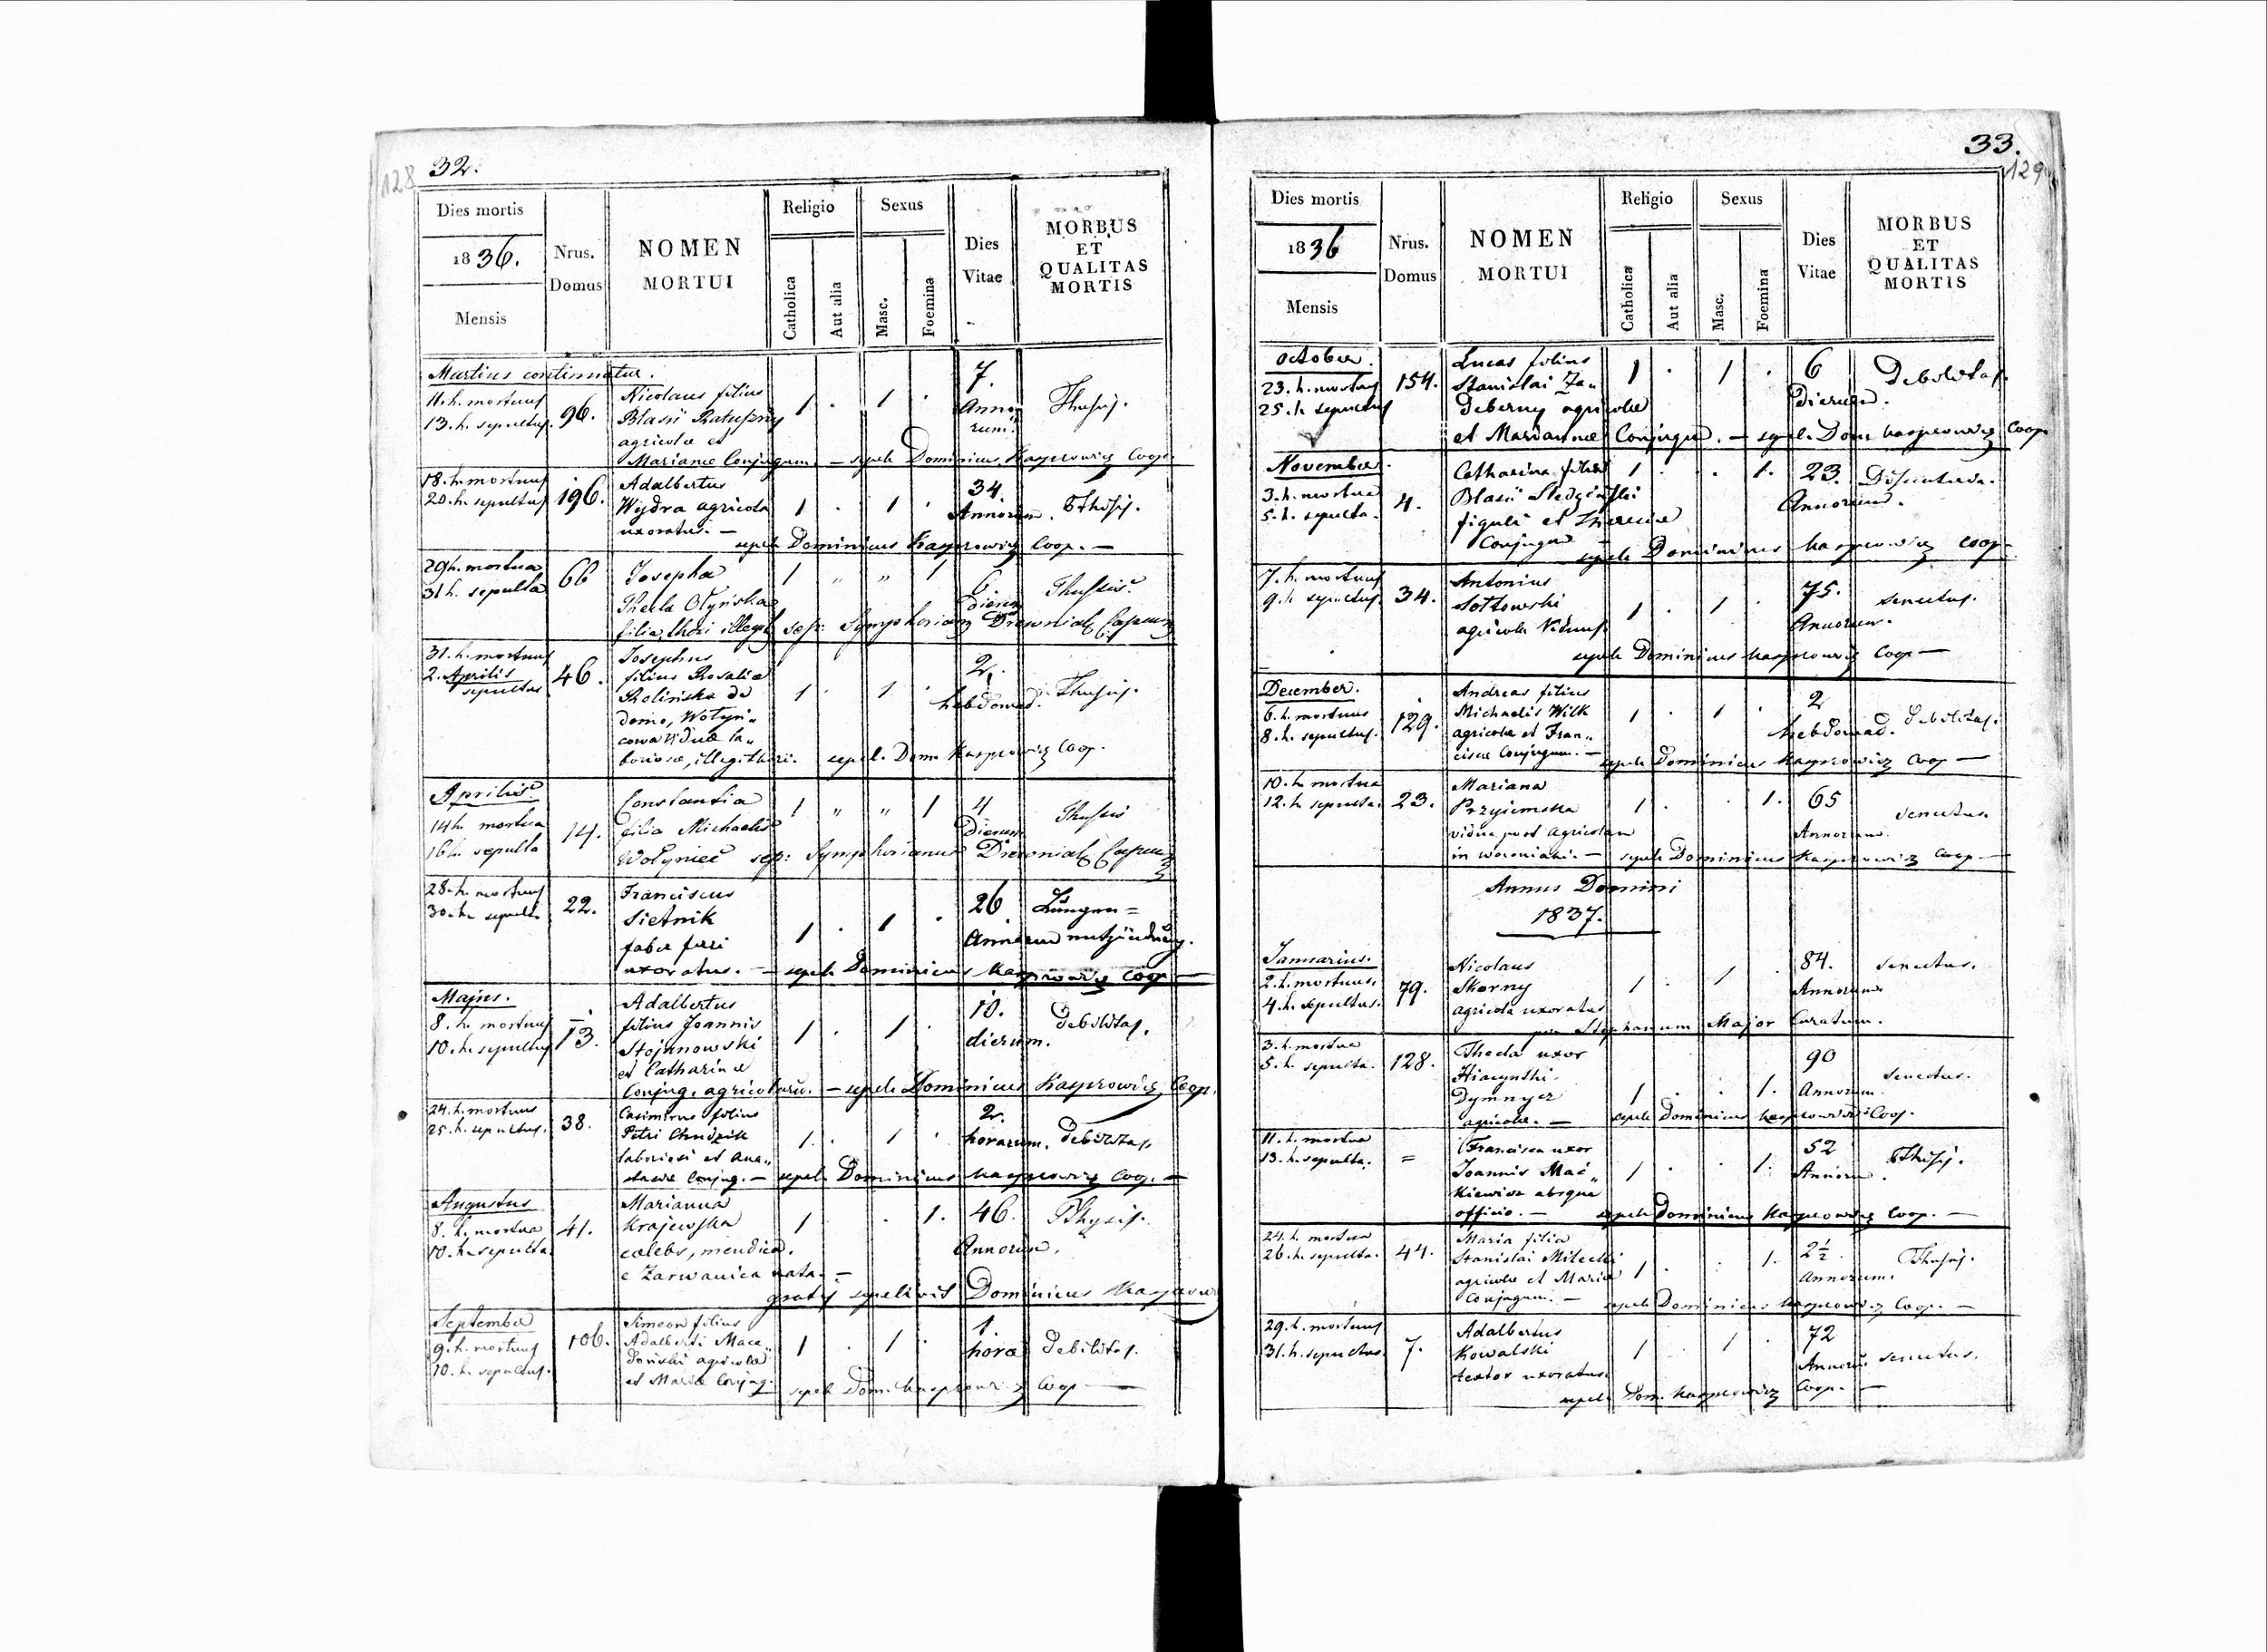 128 32.
Dies mortis
1836.
Mensis
Nrus.
Domus
NOMEN
MORTUI
Religio
Catholica
Aut alia
Sexus
Masc.
Foemina
Dies
Vitae
MORBUS
ET
QUALITAS
MORTIS
Martius continuatur.
11. h. mortuus 96. Nicolaus filius 1 . 1 . 7.
13. h. sepultus. Blasii Ratuszny Anno
agricolae et rum.
Mariannae Conjugum. – sepel. Dominicus Kasprowicz Coop.
18. h. mortuus 196. Adalbertus 34.
20. h. sepultus Wydra agricola 1 . 1 . Annorum.
uxoratus. –
sepel. Dominicus Kasprowicz Coop. –
29 h. mortua 66 Josepha 1 „ „ 1 6.
31 h. sepulta Thecla Olyńska dierum Thussis
filia thori illegit sep: Symphorianus
31. h. mortuus 46. Josephus 2.
2. Aprilis filius Rosaliae
sepultus 1 . 1 . hebdomad.
domo,
boriosae, illegit thori. sepel. Dom Kasprowicz Coop.
Aprilis
14 h. mortua 14. Constantia 1 „ „ 1 4 Thussis
16 h. sepulta filia Michaelis Dierum
Wołyniec sep: Symphorianus
28. h. mortuus 22. Franciscus 26 Lungen=
30. h. sepult. Sietnik 1 . 1 .
faber feri Annorum entzündung.
uxoratus. – sepel. Dominicus Kasprowicz Coop –
Majus.
8. h. mortuus 13. Adalbertus 10.
10. h. sepultus filius Joannis 1 . 1 . debilitas.
Stojanowski dierum.
et Catharinae
Conjug. agricolarum. – sepel. Dominicus Kasprowicz Coop.
24. h. mortuus 38. Casimirus filius 2.
25. h. sepultus. Petri Chudzik 1. 1 . horarum. debilitas,
laboriosi et Ana„
staciae Conjug. – sepel. Dominicus Kasprowicz Coop. –
Augustus
8. h. mortua 41. Marianna 1 . . 1. 46.
10. h. sepulta Krajewska
caelebs, mendica. Annorum.
e Zarwanica nata. –
gratis sepelivit Dominicus
September
9. h. mortuus 106. Simeon filius 1.
10. h. sepultus. Adalberti Mace„ 1 . 1 . hora debilitas.
doński agricolae
et Mariae Conjug.
sepel. Dom. Kasprowicz Coop –
33.
129
Dies mortis
1836
Mensis
Nrus.
Domus
NOMEN
MORTUI
Religio
Catholica
Aut alia
Sexus
Masc.
Foemina
Dies
Vitae
MORBUS
ET
QUALITAS
MORTIS
October.
23. h. mortuus 154. Lucas filius 1 . 1 . 6 Debilitas.
25. h. sepultus Stanislai Za„ Dierum.
deberny agricolae
et Mariannae Conjugum. – sepel. Dom Kasprowicz Coop
November.
3. h. mortua 4. Catharina filia 1 . . 1. 23.
5. h. sepulta. Blasii Annorum.
figuli et Theresiae
Conjugum –
sepel. Dominicus Kasprowicz Coop –
7. h. mortuus 34. Antonius 75.
9. h. sepultus. Sołtowski 1 . 1 . senectus.
agricola Viduus. Annorum.
sepel. Dominicus Kasprowicz Coop –
December.
6. h. mortuus 129. Andreas filius 2
8. h. sepultus. Michaelis Wilk 1 . 1 . hebdomad. debilitas.
agricolae et Fran„
ciscae Conjugum. – sepel. Dominicus Kasprowicz Coop –
10. h. mortua 23. Mariana 65
12. h. sepulta. Przyiemska 1 . . 1. senectus.
vidua post agricolam Annorum.
in Woroniaki. – sepel. Dominicus Kasprowicz Coop –
Annus Domini
1837.
Januarius.
2. h. mortuus. 79. Nicolaus 84. senectus.
4. h. sepultus. Skorny 1 . 1 . Annorum.
agricola uxoratus
per Stephanum Major Curatum.
3. h. mortua 128. Thecla uxor 90
5. h. sepulta. Hiacynthi 1 . . 1. Annorum. senectus.
Dymnycz
agricolae. – sepel. Dominicus Kasprowicz Coop.
11. h. mortua = Francisca uxor 52
13. h. sepulta. Joannis Mać„ 1 . . 1. Annorum.
kiewicz absque
officio. – sepel. Dominicus Kasprowicz Coop. –
24. h. mortua 44. Maria filia 2½.
26. h. sepulta. Stanislai Milecki 1 . . 1. Annorum.
agricolae et Mariae
Conjugum. – sepel. Dominicus Kasprowicz Coop. –
29. h. mortuus 7. Adalbertus 72
31. h. sepultus. Kowalski 1 . 1 . Annorum senectus.
textor uxoratus.
sepel. Dom. Kasprowicz Coop. –